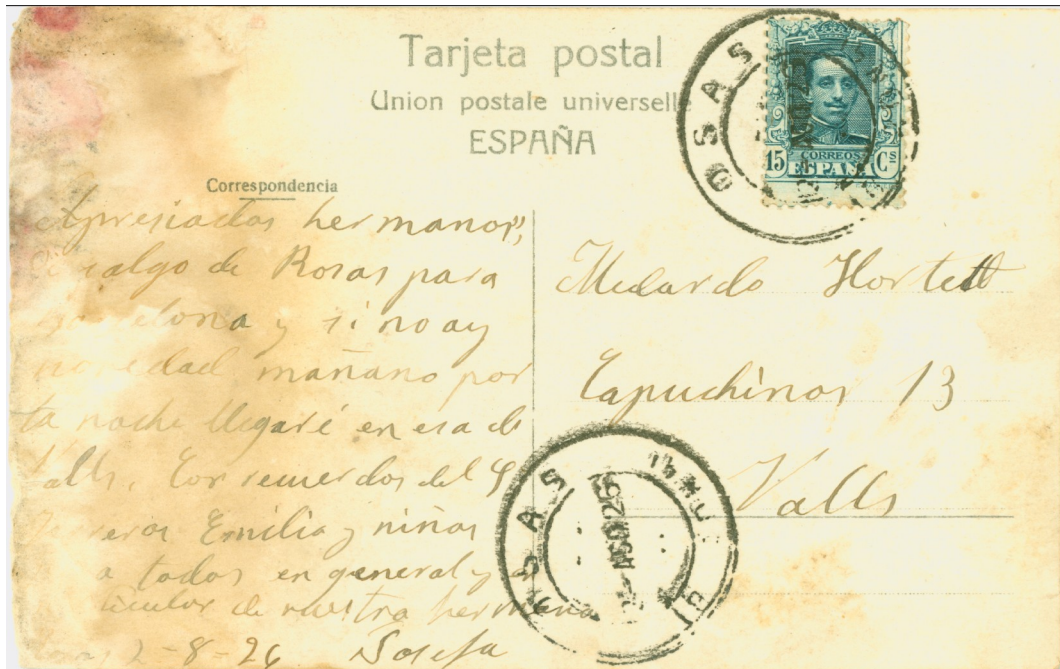 Tarjeta postal
Union postale universelle
ESPAÑA
15 CORREOS Cs
ESPAÑA
Correspondencia
Apresiados hermanos,
salgo de Rosas para
y si no ay
novedad mañana por
la noche llegaré en esa de
Valls. Los recuerdos del
Emilia y niños
a todos en general y
de nuestra hermana
2-8-26 Josefa
Medardo Hortet
Capuchinos 13
Valls
OSAS
AGO 26